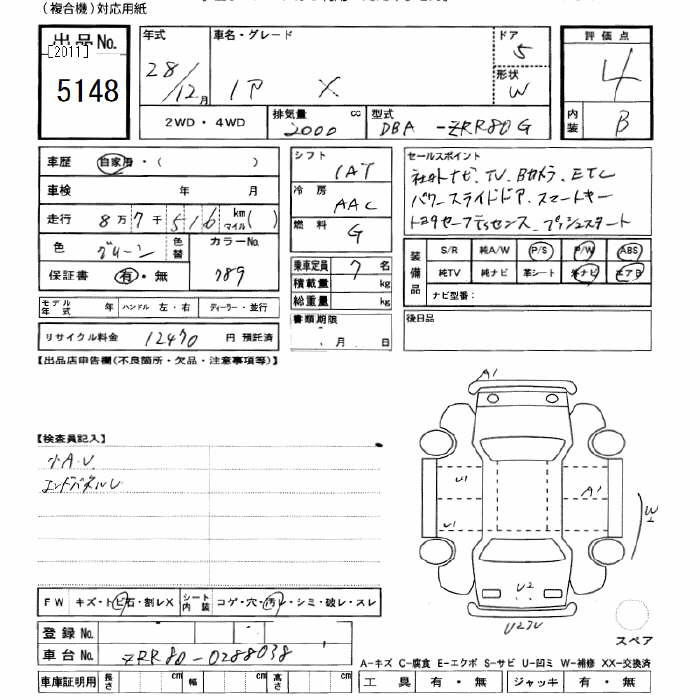 (複合機)対応用紙
出品No.
[2011]
5148
年式
28/12月
車名・グレード
X
ドア
5
形状
W
評価点
4
内装
B
2WD・4WD
排気量
2000 cc
型式
DBA-ZRR80G
車歴
自家用・( )
車検 年 月
走行 8万7千516 km マイル( )
色
グリーン
色替
カラーNo.
789
保証書 有・無
モデル年式 年 ハンドル 左・右 ディーラー・並行
リサイクル料金 12470 円 預託済
シフト
IAT
冷房
AAC
燃料
G
乗車定員 7 名
積載量 kg
総重量 kg
書類期限
月 日
セールスポイント
社外ナビ、TV、Bカメラ、ETC
パワースライドドア、スマートキー
トヨタセーフティsセンス、プッシュスタート
装備品
S/R 純A/W P/S P/W ABS
純TV 純ナビ 革シート エアB
ナビ型番:
後日品
【出品店申告欄(不良箇所・欠品・注意事項等)】
【検査員記入】
小A.U
エンドパネルU
A1
U1
U1
A1
W2
U2
U23U
スペア
FW キズ・トビ石・割レX
シート内装 コゲ・穴・汚レ・シミ・破レ・スレ
登録No.
車台No. ZRR80-0288038
車庫証明用 長さ cm 幅 cm 高さ cm
A-キズ C-腐食 E-エクボ S-サビ U-凹ミ W-補修 XX-交換済
工具 有・無 ジャッキ 有・無